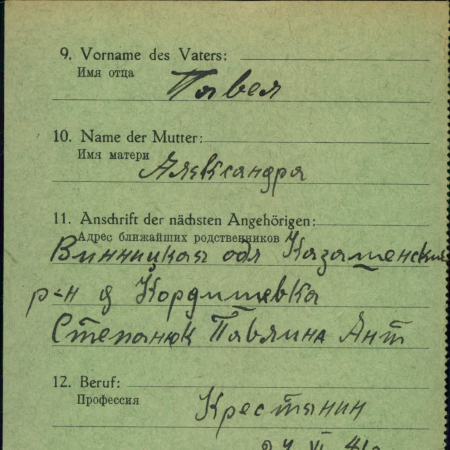 9. Vorname des Vaters:
Имя отца
Павел
10. Name der Mutter:
Имя матери
Александра
11. Anschrift der nächsten Angehörigen:
Адрес ближайших родственников
Винницкая обл Казатенский
р-н д Кордишевка
Степанюк Павлина Ант
12. Beruf:
Профессия
Крестянин
24 VI 41